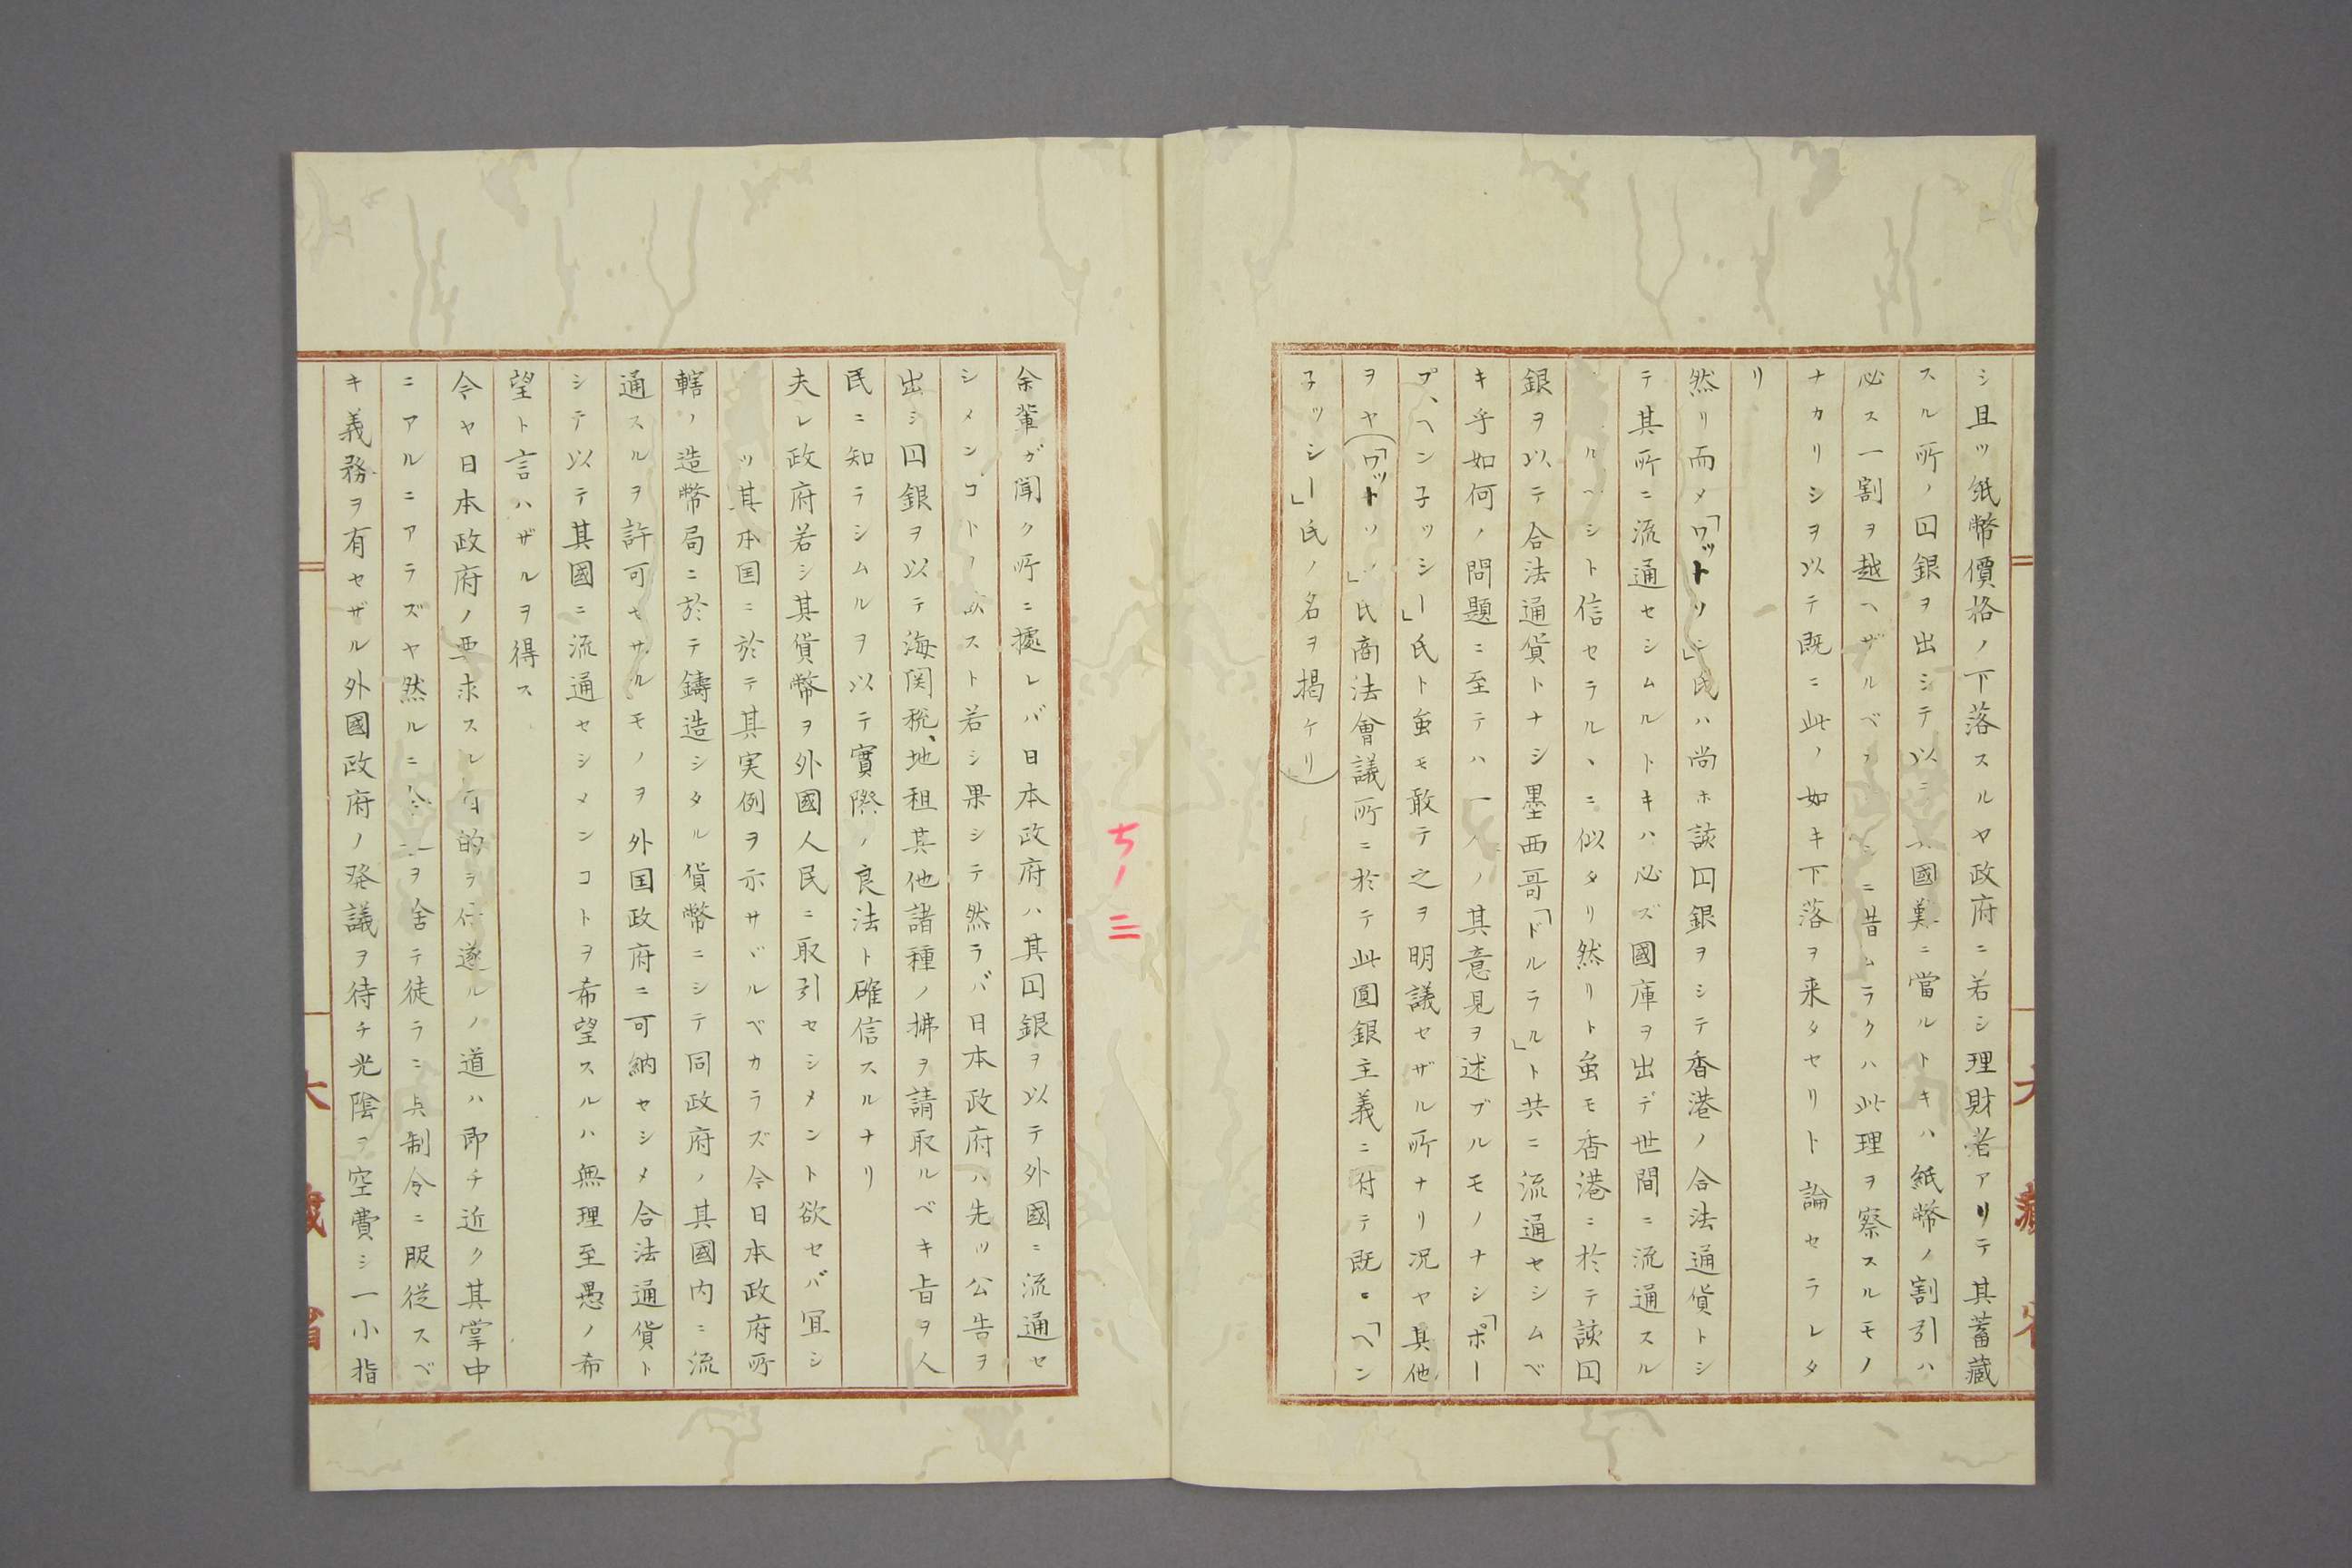 シ且ツ紙幣價格ノ下落スルヤ政府ニ若シ理財者アリテ其蓄藏
スル所ノ囙銀ヲ出シテ以テ國難ニ當ルトキハ紙幣ノ割引ハ
必ス一割ヲ越ヘザルベシ ニ昔ムラクハ此理ヲ察スルモノ
ナカリシヲ以テ既ニ此ノ如キ下落ヲ来タセリト論セラレタ
リ
然リ而メ「ワットソン」氏ハ尚ホ該囙銀ヲシテ香港ノ合法通貨トシ
テ其所ニ流通セシムルトキハ必ズ國庫ヲ出デ世間ニ流通スル
ルベシト信セラルヽニ似タリ然リト虽モ香港ニ於テ該囙
銀ヲ以テ合法通貨トナシ墨西哥「ドルラル」ト共ニ流通セシムベ
キ乎如何ノ問題ニ至テハ一人ノ其意見ヲ述ブルモノナシ「ポー
プ、ヘン子ッシー」氏ト虽モ敢テ之ヲ明議セザル所ナリ况ヤ其他
ヲヤ(「ワットソン」氏商法會議所ニ於テ此圓銀主義ニ付テ既ニ「ヘン
子ッシー」氏ノ名ヲ掲ケリ)
ち一三
余輩ガ聞ク所ニ據レバ日本政府ハ其囙銀ヲ以テ外國ニ流通セ
シメンコトヲ欲スト若シ果シテ然ラバ日本政府ハ先ッ公告ヲ
出シ囙銀ヲ以テ海関税、地租其他諸種ノ拂ヲ請取ルベキ旨ヲ人
民ニ知ラシムルヲ以テ實際ノ良法ト確信スルナリ
夫レ政府若シ其貨幣ヲ外國人民ニ取引セシメント欲セバ冝シ
ツ其本国ニ於テ其実例ヲ示サヾルベカラズ今日本政府所
轄ノ造幣局ニ於テ鑄造シタル貨幣ニシテ同政府ノ其國内ニ流
通スルヲ許可セサルモノヲ外国政府ニ可納セシメ合法通貨ト
シテ以テ其國ニ流通セシメンコトヲ希望スルハ無理至愚ノ希
望ト言ハザルヲ得ス
今ヤ日本政府ノ要求スル目的ヲ仕遂ルノ道ハ即チ近ク其掌中
ニアルニアラズヤ然ルニ今 ヲ舍テ徒ラニ其制令ニ服従スベ
キ義務ヲ有セザル外國政府ノ発議ヲ待チ光陰ヲ空費シ一小指
大藏省
大藏省